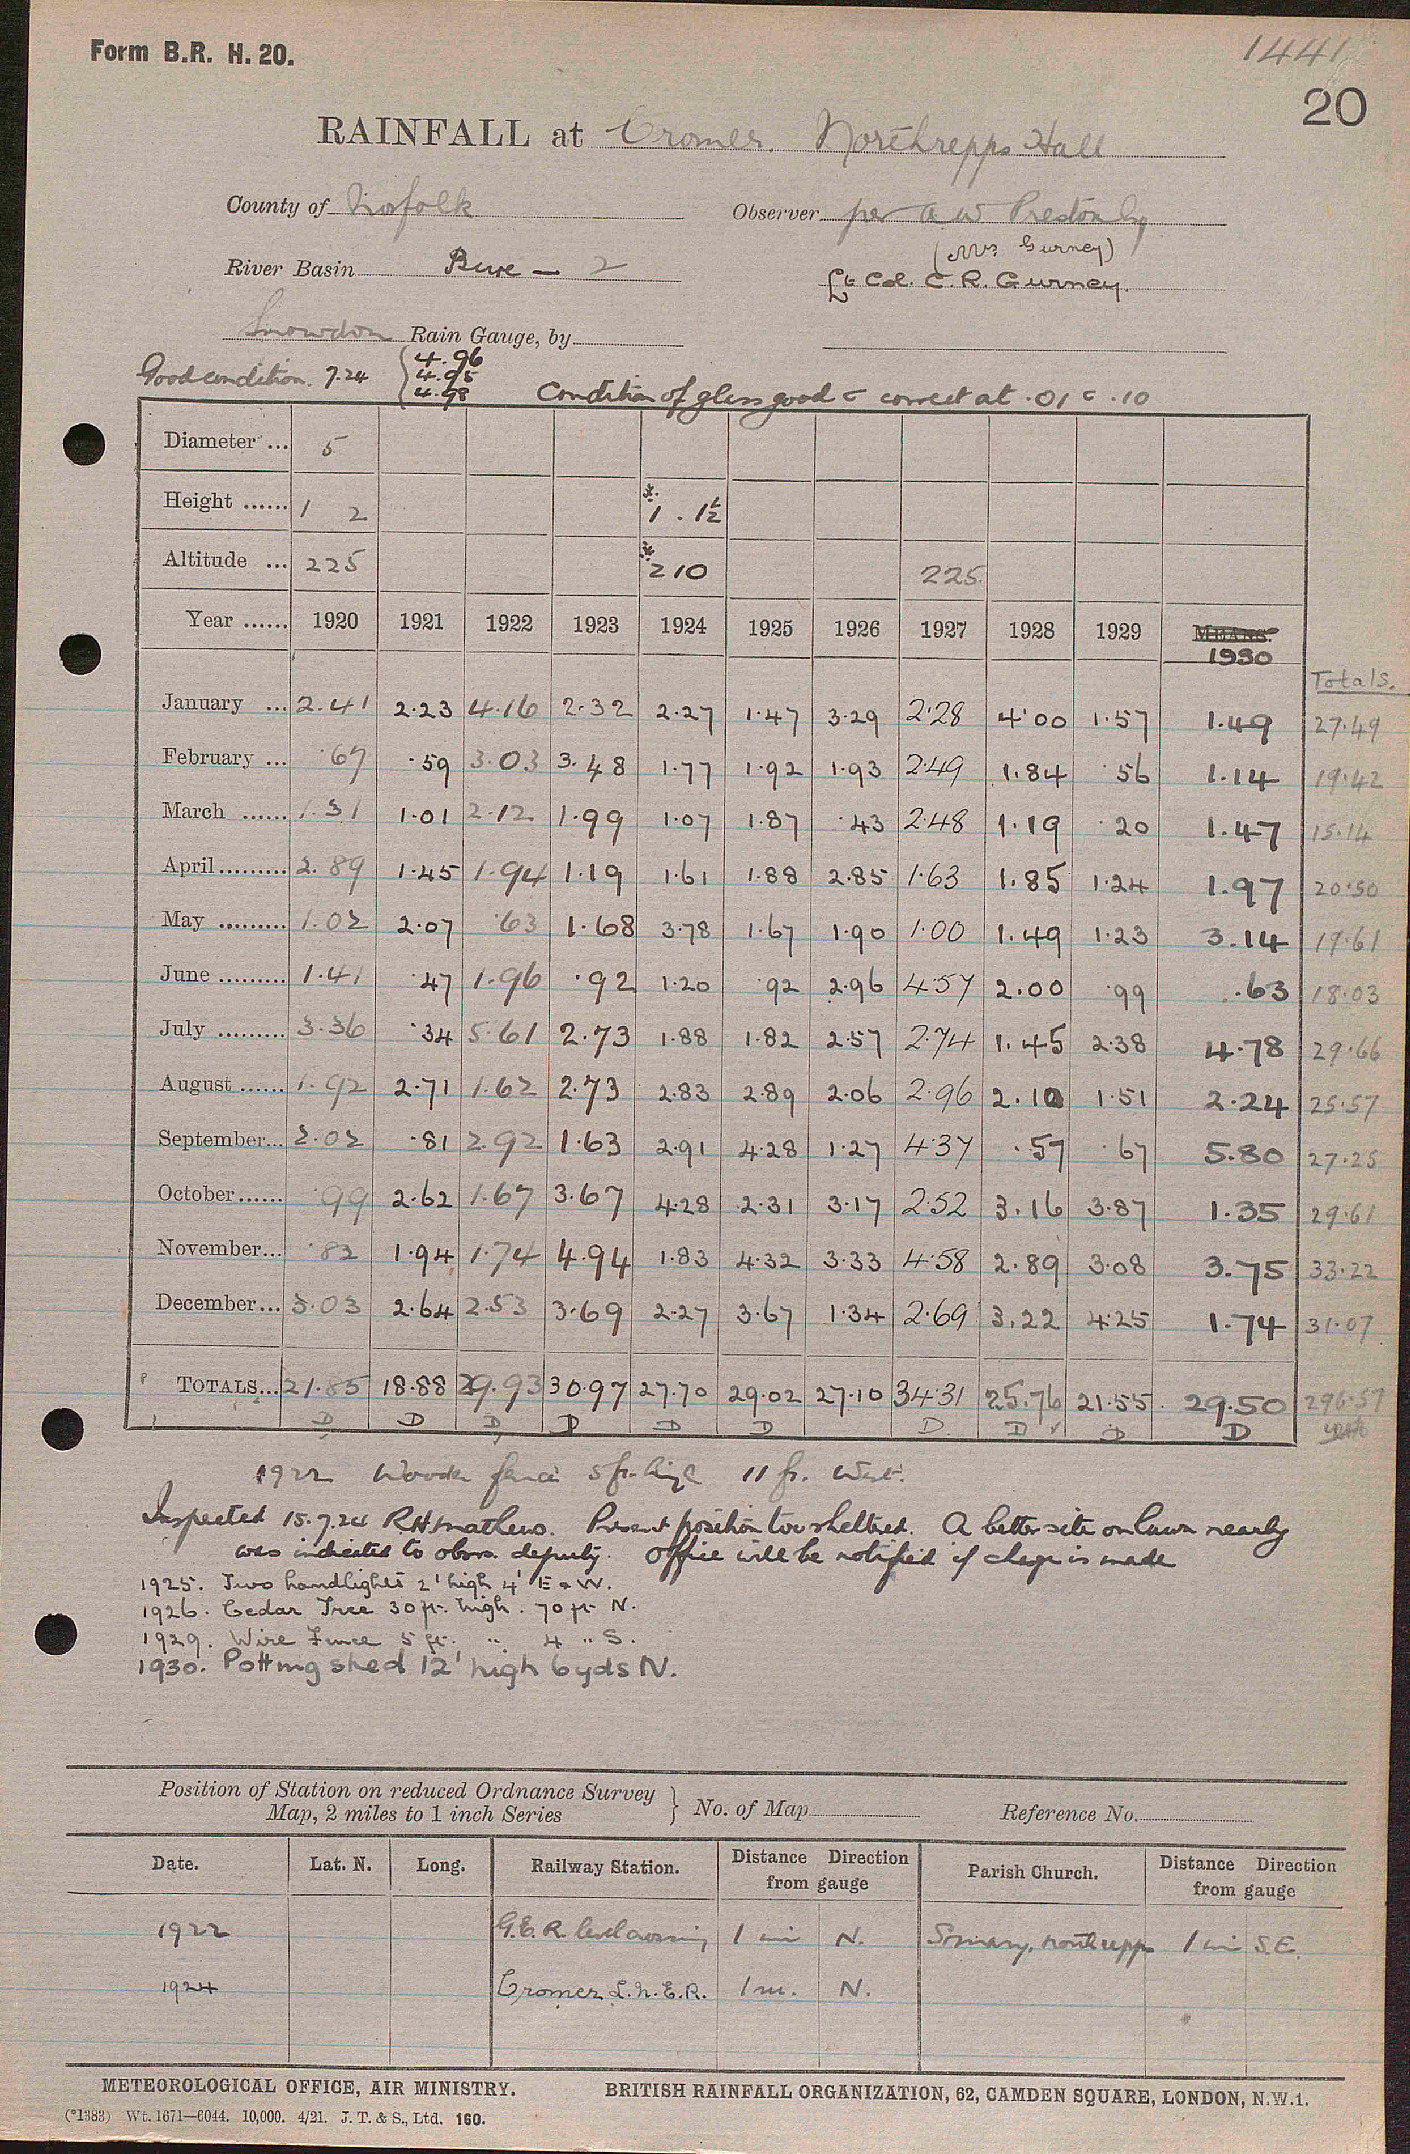 Form B.R. H. 20.
1441
20
RAINFALL at Cromer. Northrepps Hall
County of Norfolk Observer per A W Preston Esq
(Mrs Gurney)
River Basin Bure — 2 Lt Col. C. R. Gurney.
Snowdon Rain Gauge, by
Good condition. 7.24 { 4.96
4.95
4.98
Condition of glass good & correct at .01 & .10
Diameter ... 5
Height ...... 1 2 * 1 . 1½
Altitude ... 225 * 210 225
Year ...... 1920 1921 1922 1923 1924 1925 1926 1927 1928 1929 MEANS. 1930 Totals.
January ... 2.41 2.23 4.16 2.32 2.27 1.47 3.29 2.28 4.00 1.57 1.49 27.49
February ... .67 .59 3.03 3.48 1.77 1.92 1.93 2.49 1.84 .56 1.14 19.42
March ...... 1.31 1.01 2.12 1.99 1.07 1.87 .43 2.48 1.19 .20 1.47 15.14
April ......... 2.89 1.45 1.94 1.19 1.61 1.88 2.85 1.63 1.85 1.24 1.97 20.50
May ......... 1.02 2.07 .63 1.68 3.78 1.67 1.90 1.00 1.49 1.23 3.14 19.61
June ......... 1.41 .47 1.96 .92 1.20 .92 2.96 4.57 2.00 .99 .63 18.03
July ......... 3.36 .34 5.61 2.73 1.88 1.82 2.57 2.74 1.45 2.38 4.78 29.66
August ...... 1.92 2.71 1.62 2.73 2.83 2.89 2.06 2.96 2.10 1.51 2.24 25.57
September... 2.02 .81 2.92 1.63 2.91 4.28 1.27 4.37 .57 .67 5.80 27.25
October ...... .99 2.62 1.67 3.67 4.28 2.31 3.17 2.52 3.16 3.87 1.35 29.61
November... .82 1.94 1.74 4.94 1.83 4.32 3.33 4.58 2.89 3.08 3.75 33.22
December... 3.03 2.64 2.53 3.69 2.27 3.67 1.34 2.69 3.22 4.25 1.74 31.07
TOTALS... 21.85 18.88 29.93 30.97 27.70 29.02 27.10 34.31 25.76 21.55 29.50 296.57
D D D D D D D D ✓ D D
1922 Wooden fence 5 ft. high 11 ft. West.
Inspected 15.7.24 R H Mathews. Present position too sheltered. A better site on lawn nearby
was indicated to obsrs. deputy. Office will be notified if change is made
1925. Two handlights 2' high 4' E & W.
1926. Cedar Tree 30 ft. high. 70 ft N.
1929. Wire Fence 5 ft. " 4 " S.
1930. Potting shed 12' high 6 yds N.
Position of Station on reduced Ordnance Survey
Map, 2 miles to 1 inch Series } No. of Map Reference No.
Date. Lat. N. Long. Railway Station. Distance Direction from gauge Parish Church. Distance Direction from gauge
1922 G.E.R. level crossing 1 mi N. S. Mary, Northrepps 1 mi S.E.
1924 Cromer L.N.E.R. 1 m. N.
METEOROLOGICAL OFFICE, AIR MINISTRY. BRITISH RAINFALL ORGANIZATION, 62, CAMDEN SQUARE, LONDON, N.W.1.
(*1383) Wt. 1671—6044. 10,000. 4/21. J. T. & S., Ltd. 160.